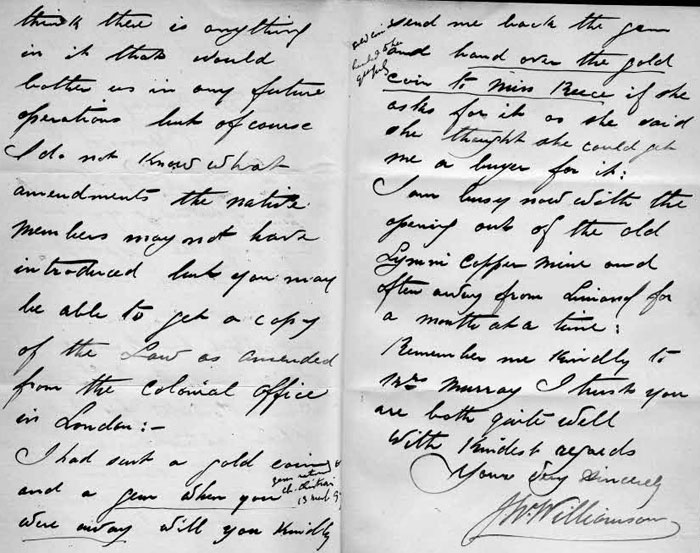 think there is anything
in it that would
bother us in any future
operations but of course
I do not know what
amendments the native
members may not have
introduced but you may
be able to get a copy
of the Law as amended
from the Colonial Office
in London:-
I had sent a gold coin
and a gem when you
were away will you kindly
gem return
13
send me back the gem
and hand over the gold
coin to Miss Reece if she
asks for it as she said
she thought she could get
me a buyer for it:
I am busy now with the
opening out of the old
Lymni Copper mine and
often away from Limassol for
a month at a time:
Remember me kindly to
Mrs Murray I trust you
are both quite well
With kindest regards
Yours very sincerely
J W Williamson
gold coin
handed to